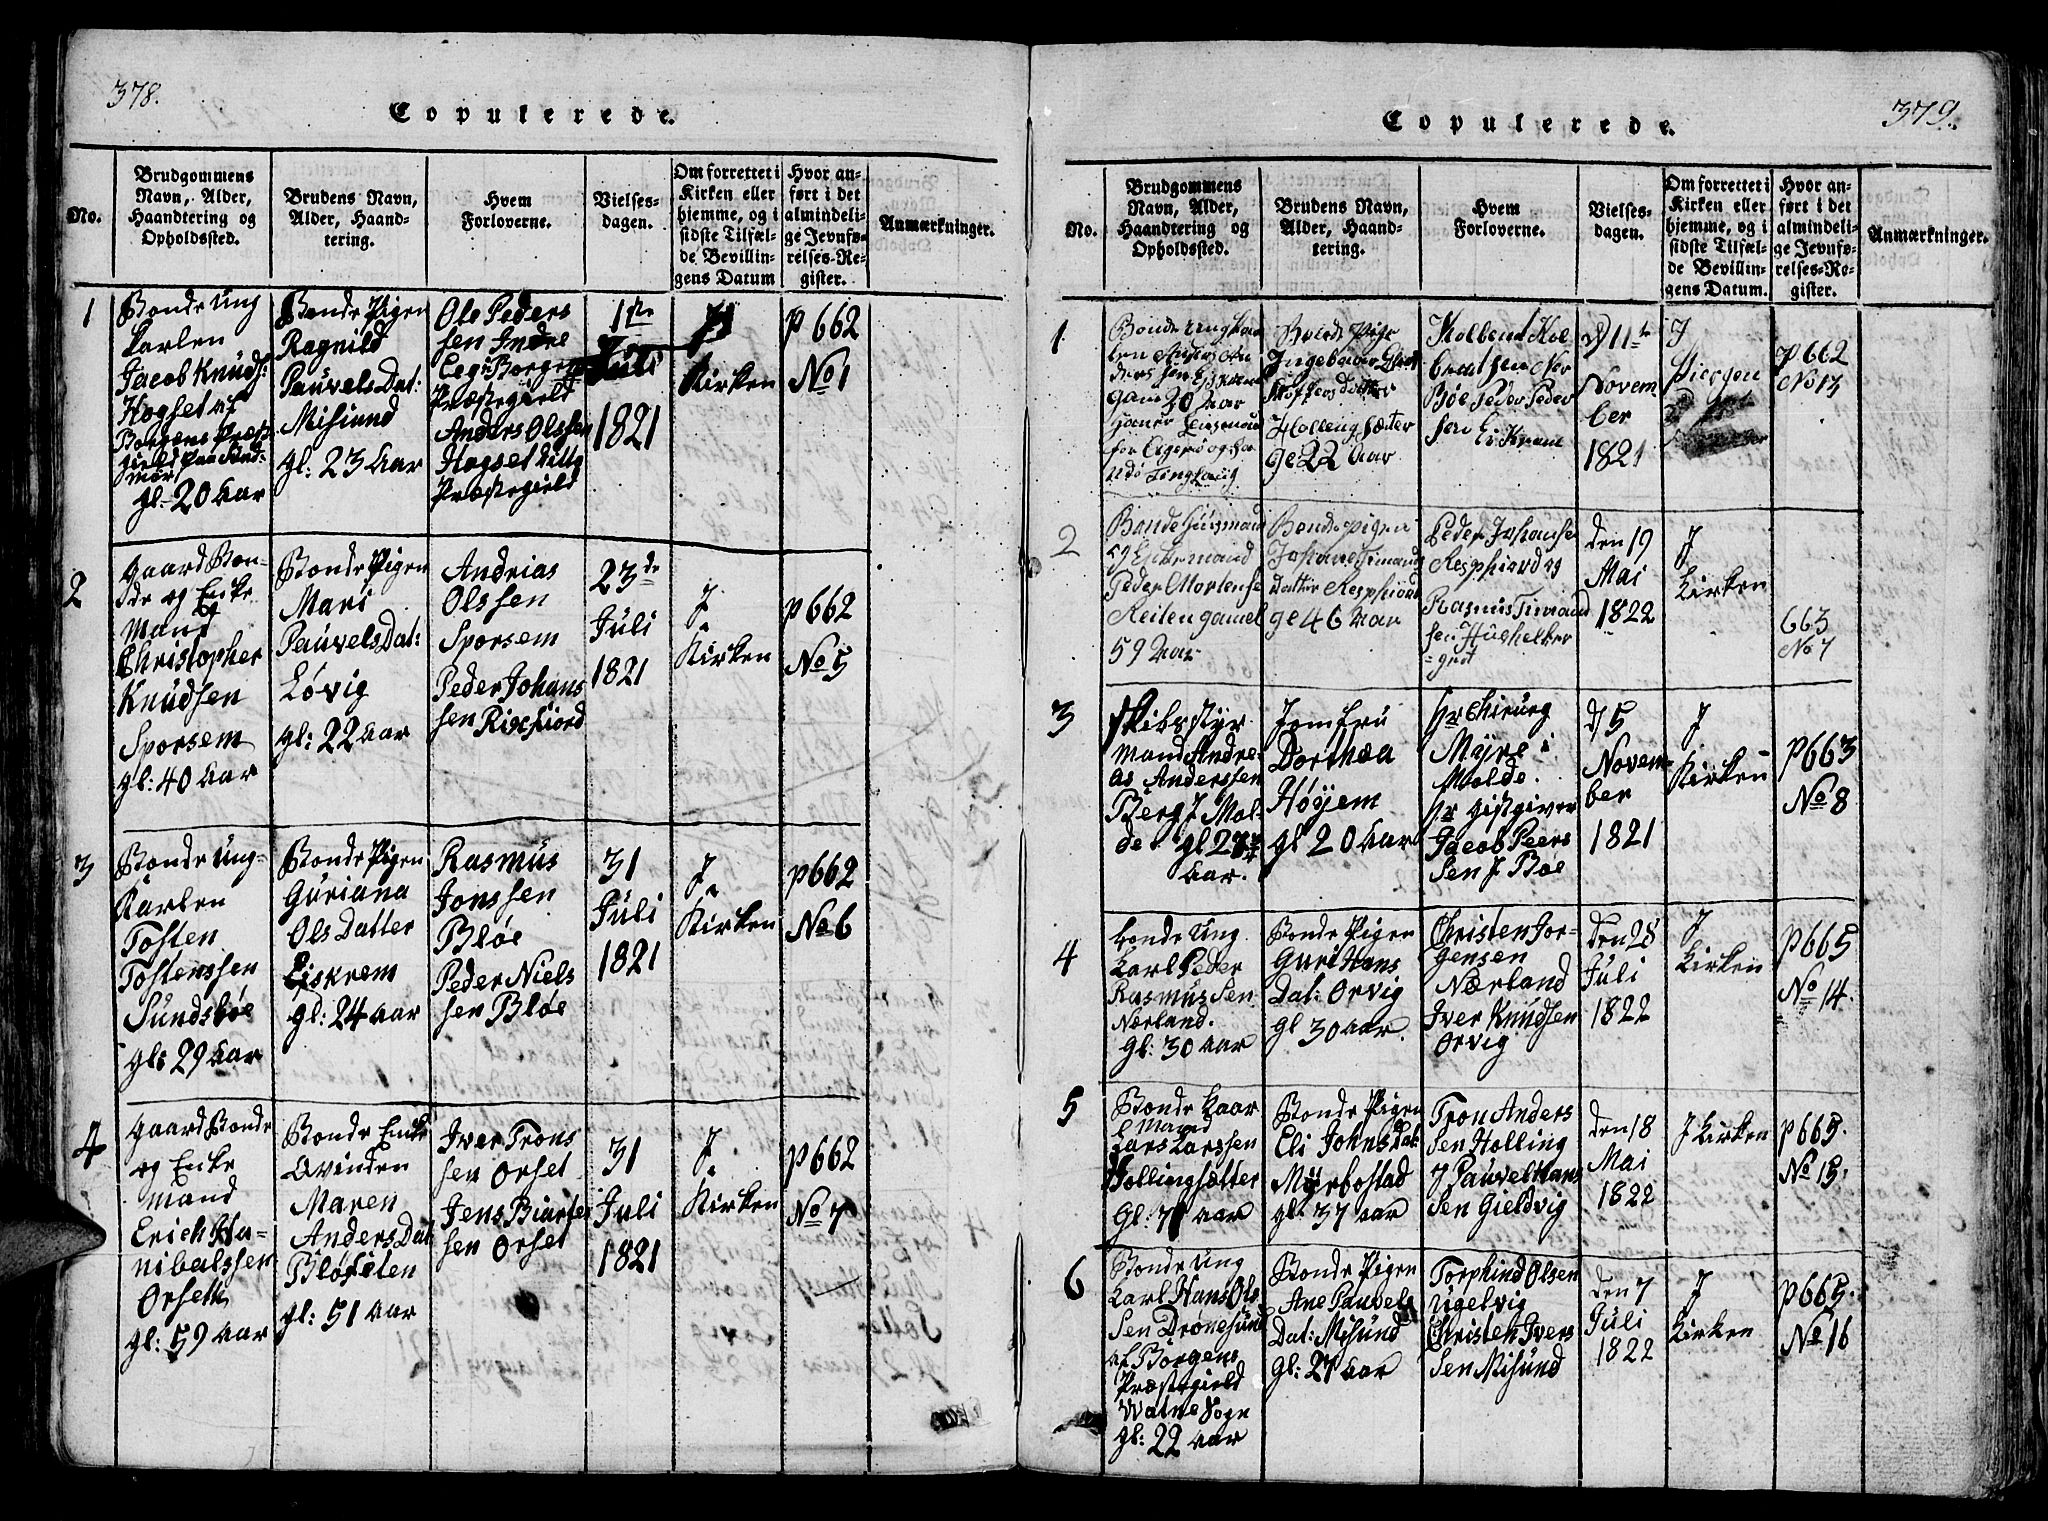 378.
Copulerede.
No.
Brudgommens
Navn, Alder,
Haandtering og
Opholdssted.
Brudens Navn,
Alder, Haand-
tering.
Hvem
Forloverne.
Vielses-
dagen.
Om forrettet i
Kirken eller
hjemme, og i
sidste Tilfæl-
de Bevillin-
gens Datum
Hvor an-
ført i det
almindeli-
ge Jevnfø-
relses-Re-
gister.
Anmærkninger.
1
Bonde Ung
Karlen
Jacob Knuds:
Hogset af
Borgens Præst
gield paa Sund-
mør
gl: 20 Aar
Bonde Pigen
Ragnild
Pauvels Dat:
Misund
gl: 23 Aar
Ole Peders
sen Indre
Eeg Borgen
Præstegield
Anders Olssen
Hogset ditto
Præstegield
1ste
Juli
1821
J
Kirken
p 662
No 1
2
Gaard Bon-
de og Encke
Mand
Christopher
Knudsen
Sporsem
gl: 40 Aar
Bonde Pigen
Mari
Pauvels Dat:
Løvig
gl: 22 Aar
Andrias
Olssen
Sporsem
Peder Johans
sen Rixfiord
23de
Juli
1821
J
Kirken
p 662
No 5
3
Bonde Ung-
Karlen
Tosten
Tostenssen
Sundsbøe
gl: 29 Aar
Bonde Pigen
Guriana
Ols Datter
Ejskrem
gl: 24 Aar
Rasmus
Jonssen
Bløe
Peder Niels
sen Bløe
31
Juli
1821
J
Kirken
p 662
No 6
4
Gaard Bonde
og Encke
mand
Erich Ha-
nibalssen
Orseth
gl: 59 Aar
Bonde Encke
Qvinden
Maren
Anders Dat
Bløkiten
gl: 51 Aar
Iver Trons
sen Orset
Jens Biarte
sen Orset
31
Juli
1821
J
Kirken
p 662
No 7
379.
Copulerede.
No.
Brudgommens
Navn, Alder,
Haandtering og
Opholdssted.
Brudens Navn,
Alder, Haand-
tering.
Hvem
Forloverne.
Vielses-
dagen.
Om forrettet i
Kirken eller
hjemme, og i
sidste Tilfæl-
de Bevillin-
gens Datum.
Hvor an-
ført i det
almindeli-
ge Jevnfø-
relses-Re-
gister.
Anmærkninger.
1
Bonde Ungkar
len Anders An
ders sen
gam 30 Aar
Bonde Pige
Ingebaar
Datter
Holling Sæter
ge 22 Aar
Kolbend Kol
bendsen Nor
Bøe Peder Peder
sen
d 11te
Novem
ber
1821
J
p 662
No 13
2
Bonde Huusmand
og Enkemand
Peder Mortense
Reiten gamel
59 Aar
Bonde pigen
Johane Simons
Datter Respfiord
ge 46 Aar
Peder Johanse
Respfiord og
Rasmus Simand
sen
den 19
Mai
1822
J
Kirken
663
No 7
3
Skibsstyr
mand Andre
as Anderssen
Berg J Mol-
de. gl 27
Aar.
Jomfru
Dorthea
Høyem
gl 20 Aar
Hr Chirurg
Myre i
Molde.
Hr Gistgiver
Jacob Peers
Sen J Boe
d 5
Novem-
ber
1821
J
Kirken
p 663
No 8
4
Bonde Ung
Karl Peder
Rasmus Sen
Nærland.
gl: 30 Aar
Bonde Pigen
Guri Hans
Dat: Orvig
gl 30 Aar.
Christen Jor-
gensen
Nærland
Iver Knudsen
Orvig
den 28
Juli
1822
J
Kirken
p 665
No 14.
5
Bonde Kaar
Mand
Lars Larssen
Hollingsætter
gl: 71 Aar
Bonde Pigen
Eli Johns Dat:
Myrbostad
gl: 37 Aar
Tron Anders
Sen Holling
J Pauvel Hans
Sen Gieldvig
den 18
Mai
1822
J Kirken
p 665.
No 15.
6
Bonde Ung
Karl Hans Ols
Sen Dronesund
af Borgens
Præstegield
Watne Sogn
gl: 22 Aar
Bonde Pigen
Ane Pauvels
Dat: Misund
gl: 27 Aar
Torphind Olsen
Ugelvig
Christen Ivers
Sen Misund
den 7
Juli
1822
J
Kirken
p 665.
No 16